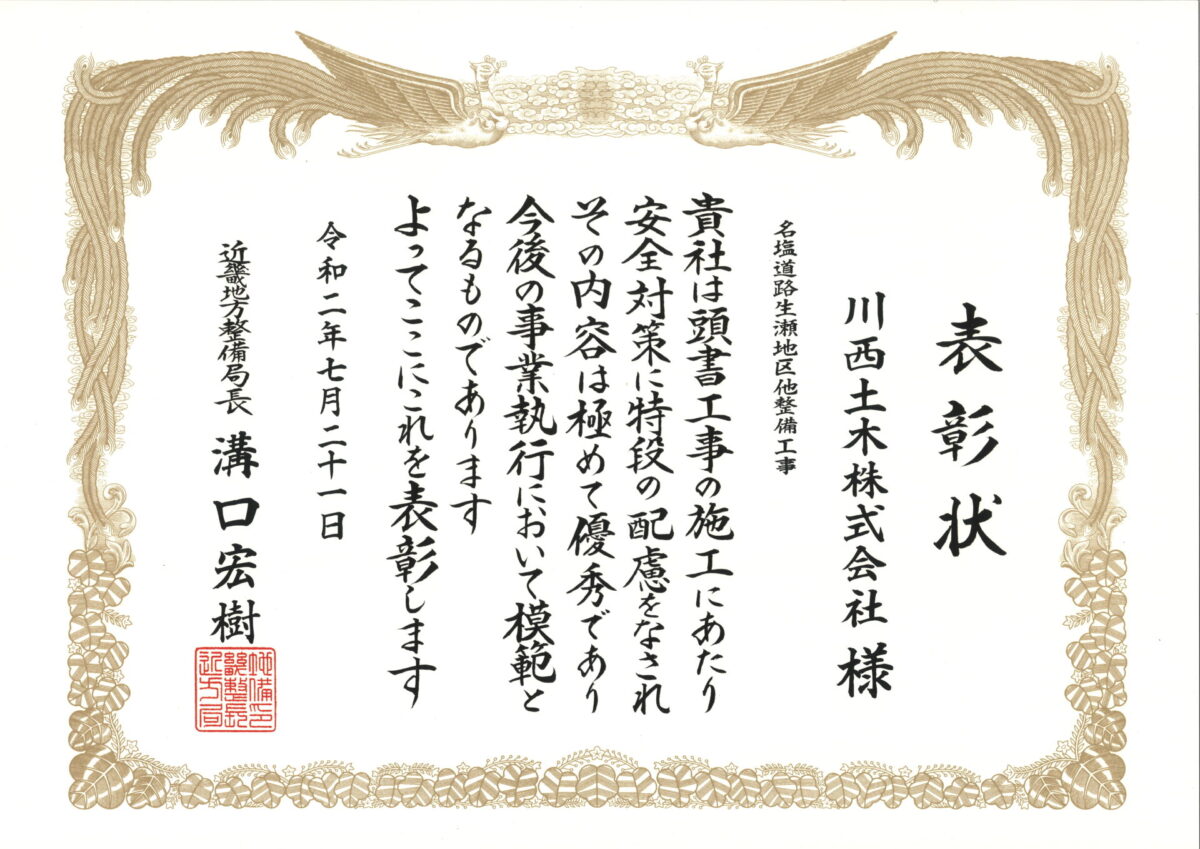 表彰状
川西土木株式会社 様
名塩道路生瀬地区他整備工事
貴社は頭書工事の施工にあたり
安全対策に特段の配慮をなされ
その内容は極めて優秀であり
今後の事業執行において模範と
なるものであります
よってここにこれを表彰します
令和二年七月二十一日
近畿地方整備局長 溝口宏樹